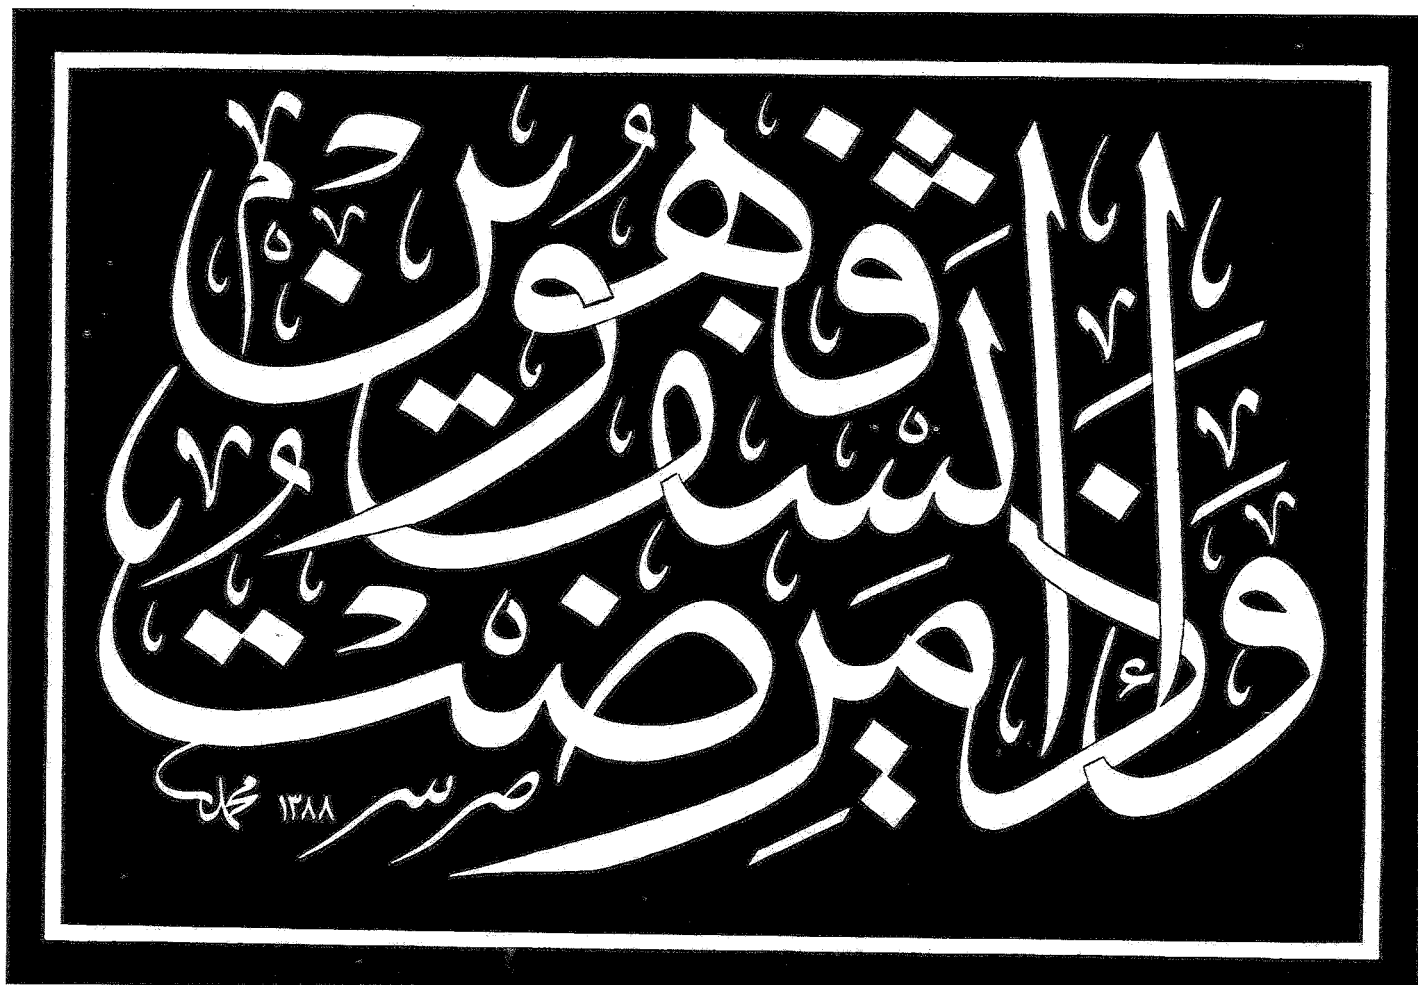 وَإِذَا مَرِضْتُ فَهُوَ يَشْفِينِ
محمد ١٣٨٨